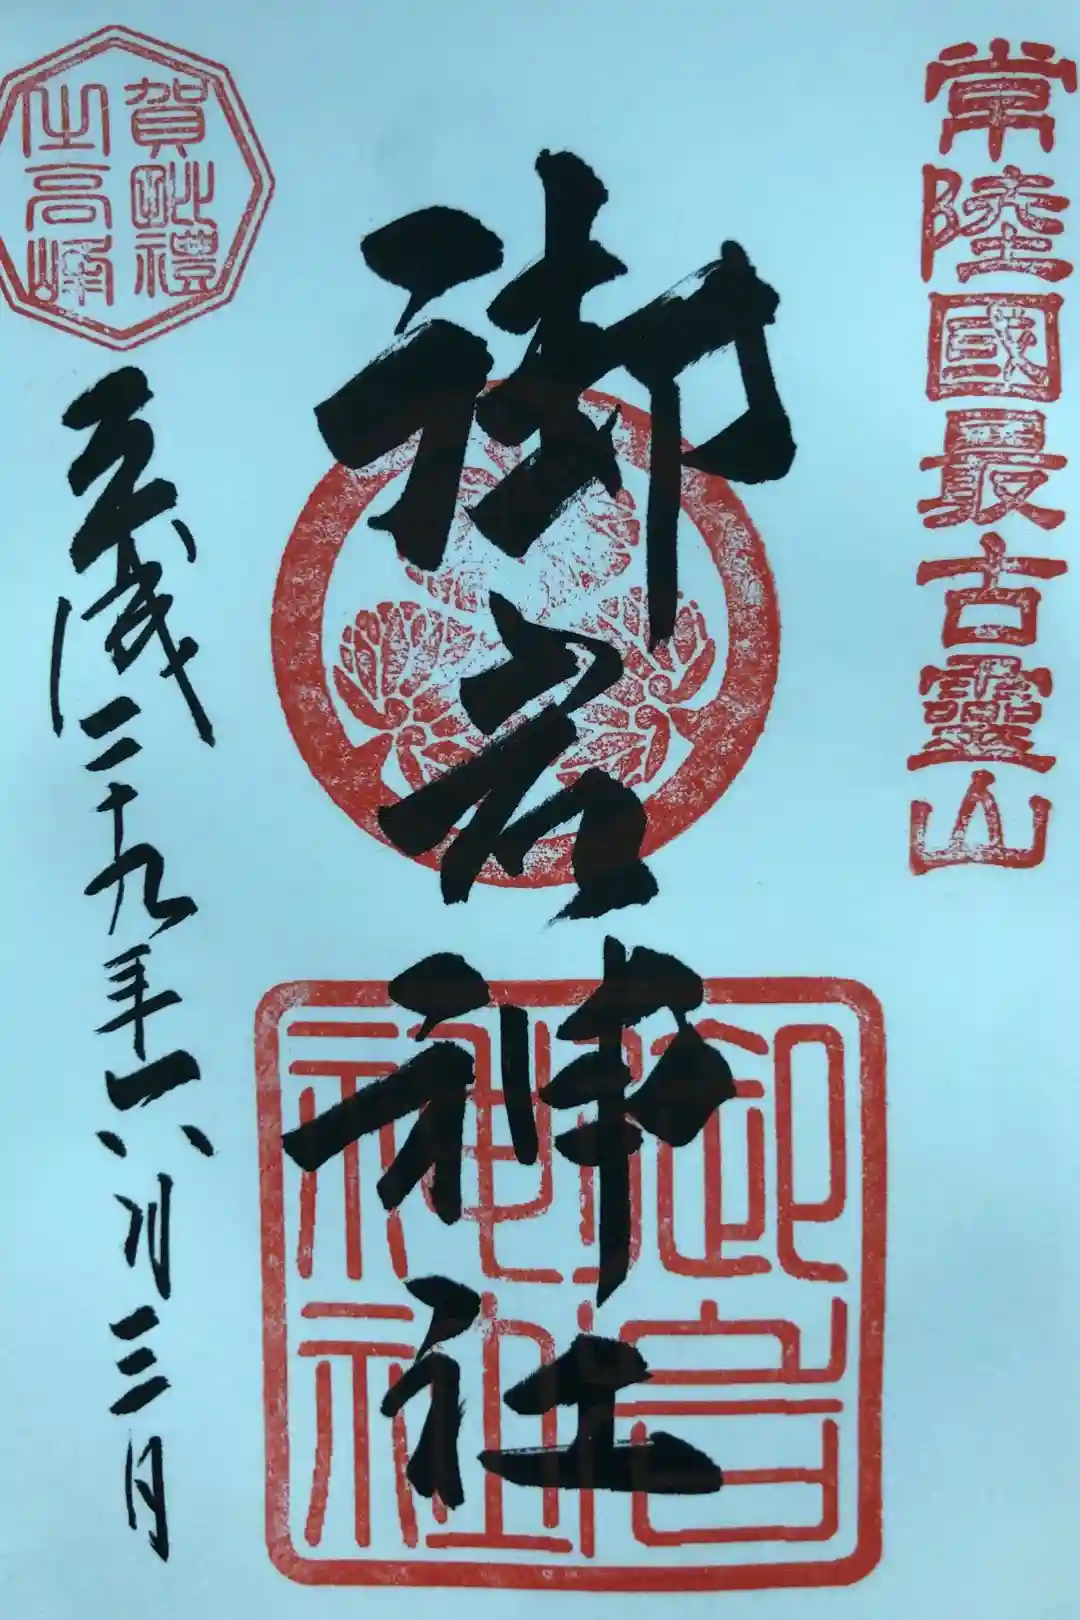 常陸國最古靈山
御岩神社
御岩神社
賀毗禮
之高峰
平成二十九年六月三日